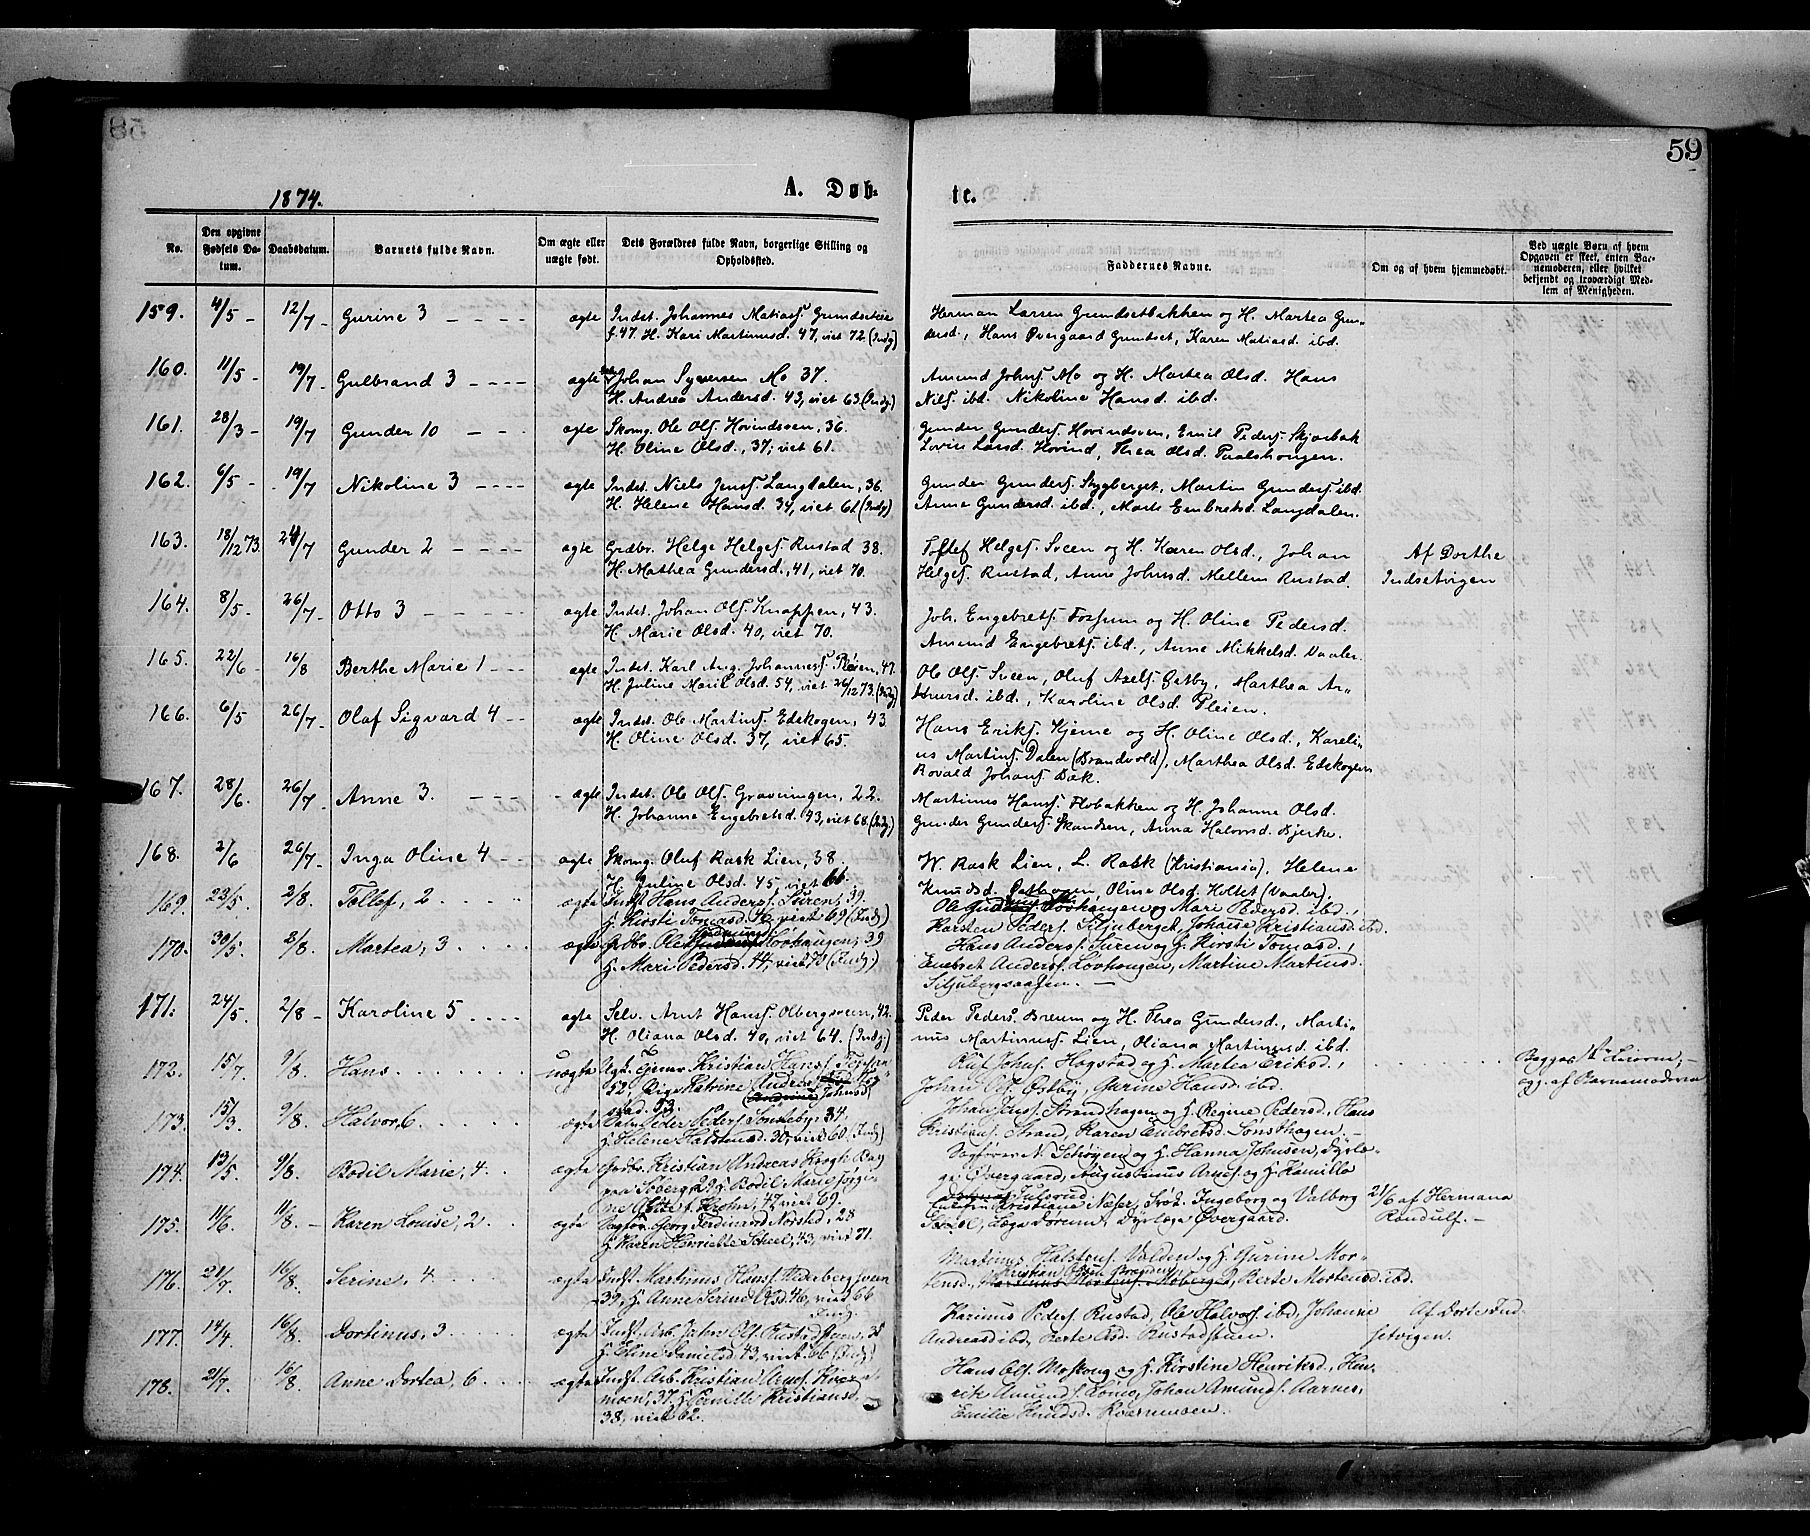 59
1874.
A. Døb-
te.
No.
Den opgivne Fødsels Datum.
Daabsdatum.
Barnets fulde Navn.
Om ægte eller uægte født.
Dets Forældres fulde Navn, borgerlige Stilling og Opholdsted.
Faddernes Navne.
Om og af hvem hjemmedøbt.
Ved uægte Børn af hvem Opgaven er skeet, enten Barnemoderen, eller hvilket bekjendt og troværdigt Medlem af Menigheden.
159. 4/5 - 12/7 - Gurine 3 ægte Indst. Johannes Matiass. Grundset
f. 47. H. Kari Martinusd. 47, viet 72. (Indg)
Herman Larsen Grundsetbakken og H. Martea Gun-
dersd., Hans Øvergaard Grundset, Karen Matiasd. ibd.
160. 11/5 - 19/7 - Gulbrand 3 ægte Johan Syversen Mo 37.
H. Andrea Andersd. 43, viet 63 (Indg)
Amund Johns. Mo og H. Martea Olsd. Hans
Nils. ibd. Nikoline Hansd. ibd.
161. 28/3 - 19/7 Gunder 10 ægte Skomg. Ole Ols. Hovindsven, 36.
H. Oline Olsd., 37, viet 61.
Gunder Gunders. Hovindsven, Emil Peders. Skjærbak
Lovise Larsd. Hovind, Thea Olsd. Paalshaugen.
162. 6/5 - 19/7 Nikoline 3 ægte Indst. Niels Jenss. Langdalen, 36.
H. Helene Hansd. 34, viet 61. (Indg)
Gunder Gunders. Stygberget, Martin Gunders. ibd.
Anne Gundersd. ibd., Marte Embretsd. Langdalen.
163. 18/12 73. 24/7 Gunder 2 ægte Grdbr. Helge Helges. Rustad 38.
H. Mathea Gundersd., 41, viet 70.
Toflef Helges. Sveen og H. Karen Olsd., Johan
Helges. Rustad, Anne Johnsd. Mellem Rustad.
Af Dorthe
Indsetvigen
164. 8/5 - 26/7 - Otto 3 ægte Indst. Johan Ols. Knappen, 43.
H. Marie Olsd. 40, viet 70.
Joh. Engebrets. Fossum og H. Oline Pedersd.
Amund Engebrets. ibd., Anne Mikkelsd. Vaaler.
165. 22/6 - 16/8 Berthe Marie 1 ægte Indst. Karl Aug. Johanness. Pleien, 47.
H. Juline Marie Olsd. 54, viet 26/12 73. (Indg)
Ole Ols. Sveen, Oluf Axels. Østby, Marthea
ibd., Karoline Olsd. Pleien.
166. 6/5 - 26/7 - Olaf Sigvard 4 ægte Indst. Ole Martins. Edskogen, 43
H. Oline Olsd. 37, viet 65.
Hans Eriks. Kjerne og H. Oline Olsd., Kareli-
us Martins. Dalen (Brandvold), Marthea Olsd. Edskogen
Rovald Johans. Bæk.
167. 28/6 - 26/7 - Anne 3. ægte Indst. Ole Ols. Gravningen, 22.
H. Johanne Engebretsd. 43, viet 68. (Indg)
Martinus Hans. Flobakken og H. Johanne Olsd.
Gunder Gunders. Skandsen, Anna Halvorsd. Bjerke.
168. 2/6 26/7 - Inga Oline 4 ægte Skomg. Oluf Rask Lien, 38.
H. Juline Olsd. 45, viet 66.
W. Rask Lien, L. Rask (Kristiania), Helene
Knudsd. Oline Olsd. Holtet (Vaaler).
169. 23/5 - 2/8. Tollef, 2 ægte Indst. Hans Anders. Suren, 39.
H. Kirsti Tomasd. viet 69 (Indg.)
Ole Løvhaugen og Mari Pedersd. ibd.,
Karsten Peders. Siljuberget, Johanne Kristiansd. ibd.
170. 30/5 - 2/8. Martea, 3 ægte Grdbr. Ole Løvhaugen, 39
H. Mari Pedersd. 44, viet 70 (Indg.)
Hans Anders. Suren og H. Kirsti Tomasd.,
Embret Anders. Løvhaugen, Martine Martinsd.
Siljubergsaasen.
171. 24/5 - 2/8 - Karoline 5 ægte Selv. Arnt Hans. Olbergsveen, 42.
H. Oliana Olsd. 40, viet 64. (Indg.)
Peder Peders. Brenn og H. Thea Gundersd., Marti-
nus Martinus. Lien, Oliana Martinusd. ibd.
172. 15/7. 9/8. Hans uægte Ugt. Kristian Hans.
52, Pige Johnsd.
53.
Oluf Johns. Hogstad og H. Martea Eriksd.,
Johan Ols. Østby, Gurine Hansd. ibd.
Begges
og af Barnemoderen
173. 15/3. 9/8. Halvor, 6 ægte Peder Peders. Sønsteby, 34,
H. Helene Halstensd. 30, viet 60 (Indg)
Johan Jens. Strandhagen og H. Regine Pedersd., Hans
Kristians. Strand, Karen Embretsd. Sønsthagen.
174. 13/5 9/8. Bodil Marie, 4. ægte Grdbr. Kristian Andreas Krogh
Søberg 29, H. Bodil Marie Jørgi-
ne f. Krohn, 47, viet 69.
N. Schøyen og H. Hanna Johnsen, Dyrlæ-
ge Øvergaard, Augustinus Arnes. og H. Kamilla
Julsrud.
175. 11/6. 11/8. - Karen Louise, 2 ægte Georg Ferdinand Norsted, 28
H. Karen Henriette Scheel, 43, viet 71.
Kristiane Næser, Ingeborg og Valborg
Scheel, Læge Dyrlæge Øvergaard.
21/6 af Hermana
Rondulf.
176. 21/7. 16/8. Serine, 4. ægte Indst. Martinus Hans. Ulderberg sveen
39, H. Anne Serine Olsd. 46, viet 66
Indg.
Martinus Halstens. Volden og H. Gurine Mor-
tensd., Kristian Berte Mortensd. ibd.
177. 14/4 16/8. Dortinus, 3. ægte Indst. Arb. Johan Ols. Rustadstuen, 38
H. Eline Danielsd. 43, viet 66 (Indg)
Karinus Peders. Rustad, Ole Halvors. ibd., Johanne
Andreasd. ibd., Berte Rustadstuen.
Af Dorte Ind-
setvigen.
178. 21/7. 16/8. Anne Dortea, 6 ægte Indst. Arb. Kristian Arnes. Kværn-
moen, 37 H. Pernille Kristiansd.
38, viet 62.
Hans Ols. Moskoug og H. Kirstine Henriksd., Hen-
rik Amunds. Johan Amunds. Aarnes,
Emilie Knudsd. Kværnmoen.